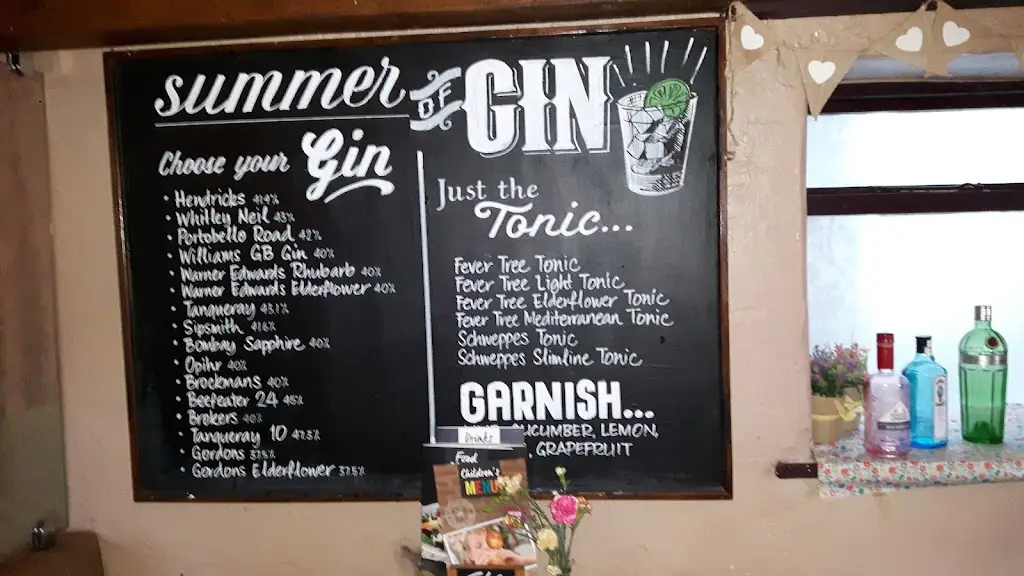 summer OF GIN
Choose your Gin
• Hendricks 41.4%
• Whitley Neil 43%
• Portobello Road 42%
• Williams GB Gin 40%
• Warner Edwards Rhubarb 40%
• Warner Edwards Elderflower 40%
• Tanqueray 43.1%
• Sipsmith 41.6%
• Bombay Sapphire 40%
• Opihr 40%
• Brockmans 40%
• Beefeater 24 45%
• Brokers 40%
• Tanqueray 10 47.3%
• Gordons 37.5%
• Gordons Elderflower 37.5%
Just the
Tonic...
Fever Tree Tonic
Fever Tree Light Tonic
Fever Tree Elderflower Tonic
Fever Tree Mediterranean Tonic
Schweppes Tonic
Schweppes Slimline Tonic
GARNISH...
CUCUMBER, LEMON,
, GRAPEFRUIT
Drinks
Food
Children's
MENU